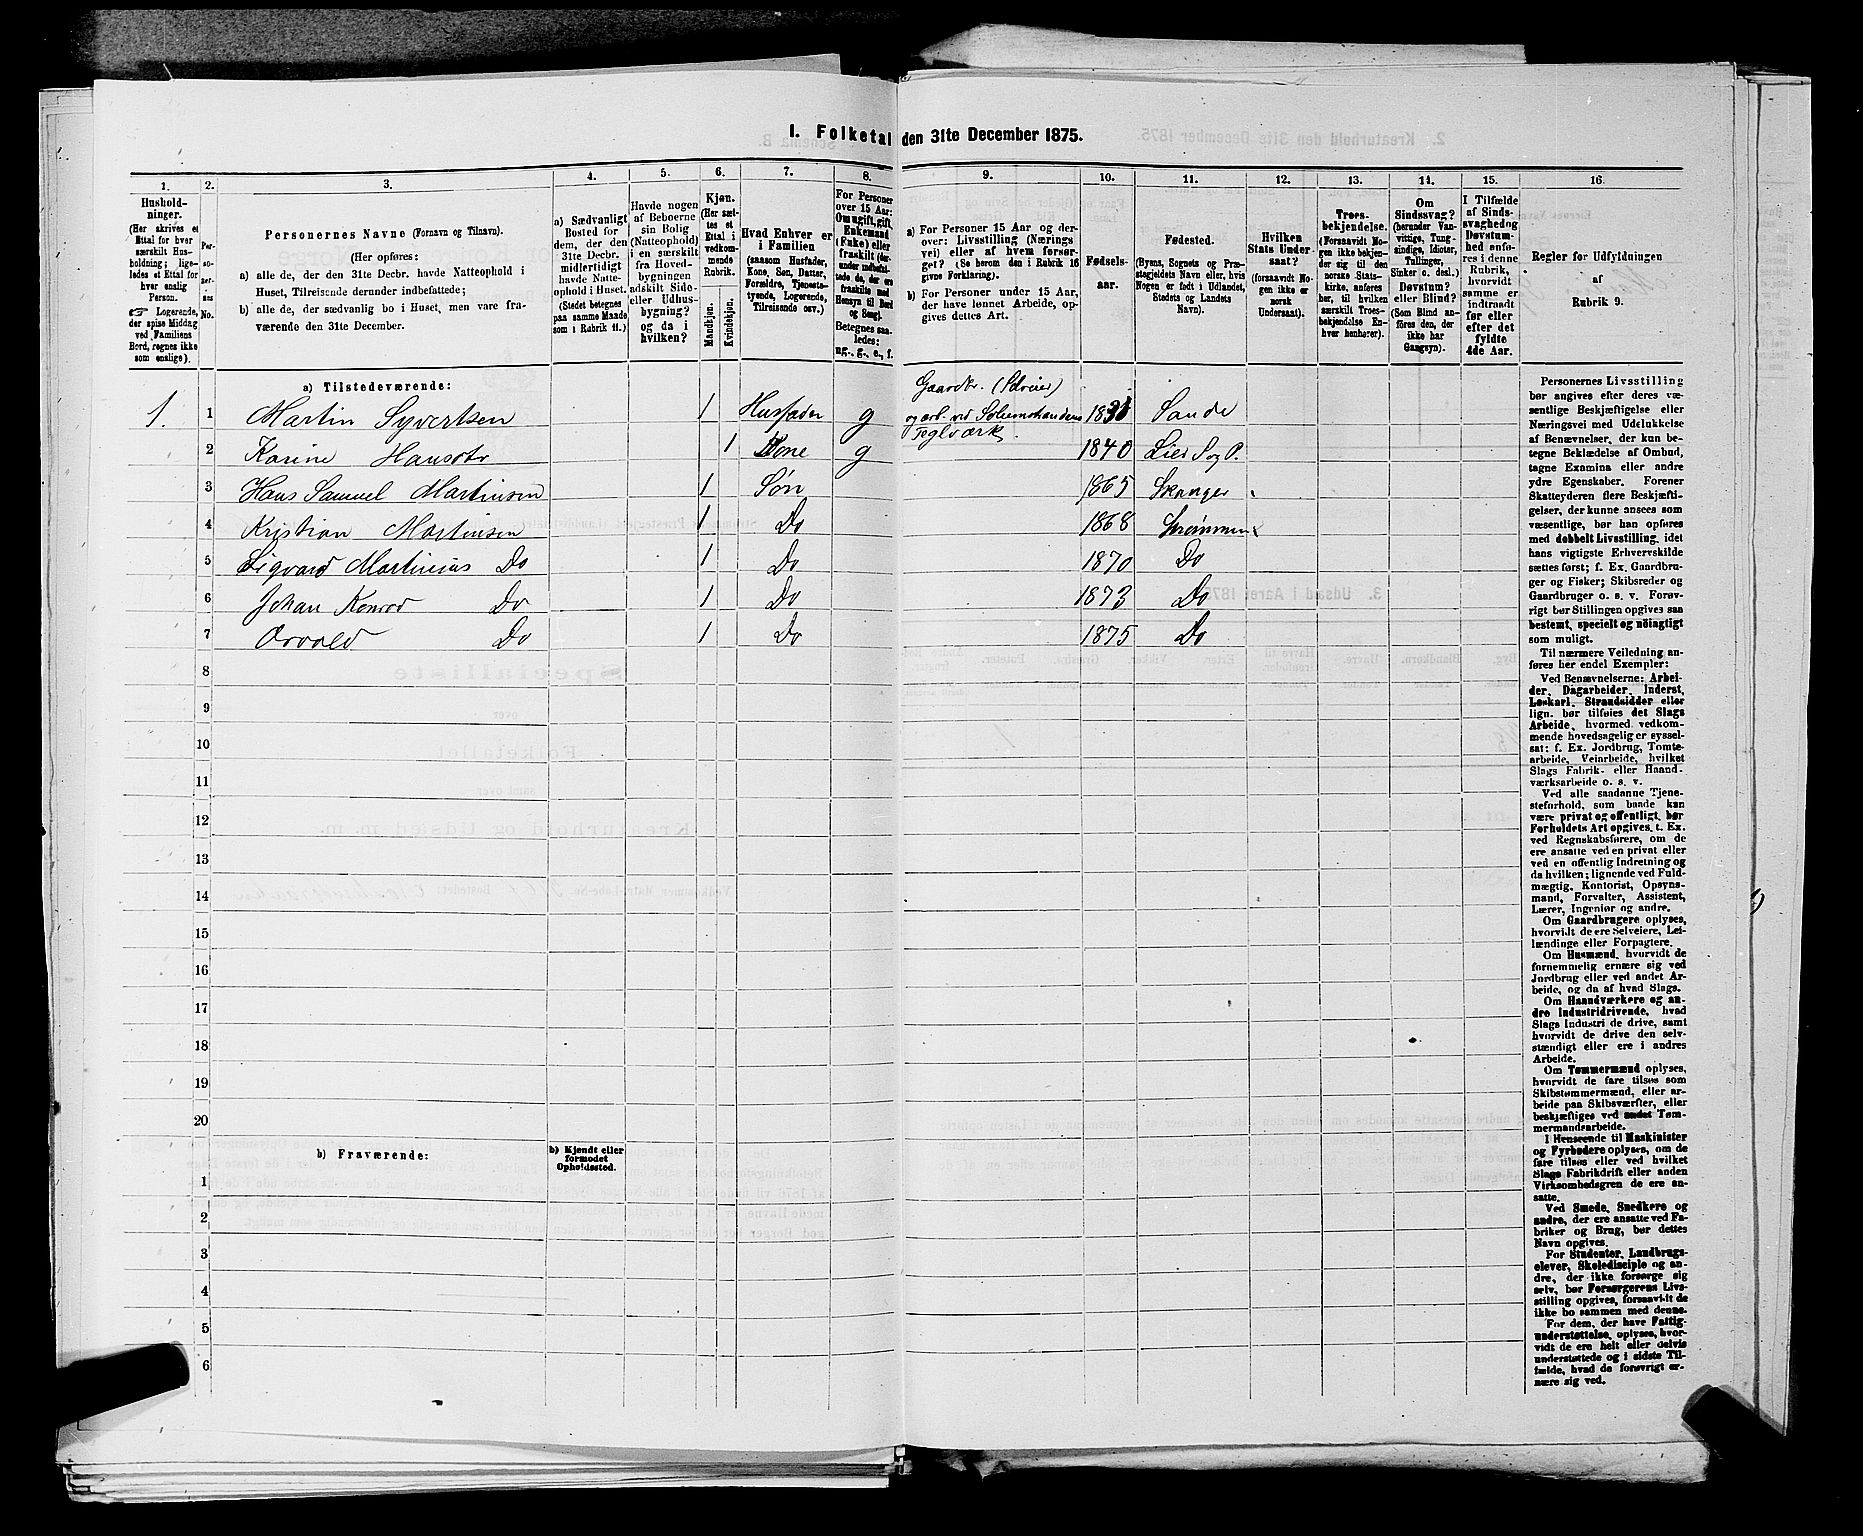 I. Folketal den 31te December 1875.
1.
Hushold-
ninger.
(Her skrives et
Ettal for hver
særskilt Hus-
holdning; lige-
ledes et Ettal for
hver enslig
Person.
☞ Logerende,
der spise Middag
ved Familiens
Bord, regnes ikke
som enslige).
2.
Per-
so-
ner-
nes
No.
3.
Personernes Navne (Fornavn og Tilnavn).
(Her opføres:
a) alle de, der den 31te Decbr. havde Natteophold i
Huset, Tilreisende derunder indbefattede;
b) alle de, der sædvanlig bo i Huset, men vare fra-
værende den 31te December.
4.
a) Sædvanligt
Bosted for
dem, der den
31te Decbr.
midlertidigt
havde Natte-
ophold i Huset.
(Stedet betegnes
paa samme Maade
som i Rubrik 11.)
5.
Havde nogen
af Beboerne
sin Bolig
(Natteophold)
i en særskilt
fra Hoved-
bygningen
adskilt Side-
eller Udhus-
bygning?
og da i
hvilken?
6.
Kjøn.
(Her sæt-
tes et
Ettal i
vedkom-
mende
Rubrik.
Mandkjøn.
Kvindekjøn.
7.
Hvad Enhver er
i Familien
(saasom Husfader,
Kone, Søn, Datter,
Forældre, Tjeneste-
tyende, Logerende,
Tilreisende osv.)
8.
For Personer
over 15 Aar:
Om ugift, gift,
Enkemand
(Enke) eller
fraskilt (der-
under indbefat-
tede de, der ere
fraskilte med
Hensyn til Bord
og Seng).
Betegnes saa-
ledes:
ug., g., e., f.
9.
a) For Personer 15 Aar og der-
over: Livsstilling (Nærings-
vei) eller af hvem forsør-
get? (Se herom den i Rubrik 16
givne Forklaring).
b) For Personer under 15 Aar,
der have lønnet Arbeide, op-
gives dettes Art.
10.
Fødsels-
aar.
11.
Fødested.
(Byens, Sognets og Præ-
stegjeldets Navn eller, hvis
Nogen er født i Udlandet,
Stedets og Landets
Navn).
12.
Hvilken
Stats Under-
saat?
(forsaavidt No-
gen ikke er
norsk
Undersaat).
13.
Troes-
bekjendelse.
(Forsaavidt No-
gen ikke bekjen-
der sig til den
norske Stats-
kirke, anføres
her, til hvilken
særskilt Troes-
bekjendelse En-
hver henhører).
14.
Om
Sindssvag?
(herunder Van-
vittige, Tung-
sindige, Idioter,
Tullinger,
Sinker o. desl.)
Døvstum?
eller Blind?
(Som Blind an-
føres den, der
ikke har
Gangsyn).
15.
I Tilfælde
af Sinds-
svaghed og
Døvstum-
hed anfø-
res i denne
Rubrik,
hvorvidt
samme er
indtraadt
før eller
efter det
fyldte
4de Aar.
16.
Regler for Udfyldningen
af
Rubrik 9.
a) Tilstedeværende:
1. 1 Martin Syvertsen 1 Husfader g Gaardbr. (Selveier) og arb. ved Teglværk. Sande
2 Karine Hansdtr 1 Kone g 1840 Lier S og P.
3 Hans Samuel Martinsen 1 Søn 1865 Skanger
4 Kristian Martinsen 1 Do 1868 Strømmen
5 Sigvard Martinius Do 1 Do 1870 Do
6 Johan Konrad Do 1 Do 1873 Do
7 Orvald Do 1 Do 1875 Do
8
9
10
11
12
13
14
15
16
17
18
19
20
b) Fraværende:
b) Kjendt eller
formodet
Opholdssted.
1
2
3
4
5
6
Personernes Livsstilling
bør angives efter deres væ-
sentlige Beskjæftigelse eller
Næringsvei med Udelukkelse
af Benævnelser, der kun be-
tegne Beklædelse af Ombud,
tagne Examina eller andre
ydre Egenskaber. Forener
Skatteyderen flere Beskjæfti-
gelser, der kunne ansees som
væsentlige, bør han opføres
med dobbelt Livsstilling, idet
hans vigtigste Erhvervskilde
sættes først; f. Ex. Gaardbru-
ger og Fisker; Skibsreder og
Gaardbruger o. s. v. Forøv-
rigt bør Stillingen opgives saa
bestemt, specielt og nöiagtigt
som muligt.
Til nærmere Veiledning an-
føres her endel Exempler:
Ved Benævnelserne: Arbei-
der, Dagarbeider, Inderst,
Løskarl, Strandsidder eller
lign. bør tilføies det Slags
Arbeide, hvormed vedkom-
mende hovedsagelig er syssel-
sat: f. Ex. Jordbrug, Tomte-
arbeide, Veiarbeide, hvilket
Slags Fabrik- eller Haand-
værksarbeide o. s. v.
Ved alle saadanne Tjene-
steforhold, som baade kan
være privat og offentligt, bør
Forholdets Art opgives, t. Ex.
ved Regnskabsførere, om de
ere ansatte ved en privat eller
ved en offentlig Indretning og
da hvilken; lignende ved Fuld-
mægtig, Kontorist, Opsyns-
mand, Forvalter, Assistent,
Lærer, Ingeniør og andre.
Om Gaardbrugere oplyses,
hvorvidt de ere Selveiere, Lei-
lændinge eller Forpagtere.
Om Husmænd, hvorvidt de
fornemmelig ernære sig ved
Jordbrug eller ved andet Ar-
beide, og da af hvad Slags.
Om Haandværkere og an-
dre Industridrivende, hvad
Slags Industri de drive, samt
hvorvidt de drive den selv-
stændigt eller ere i andres
Arbeide.
Om Tømmermænd oplyses,
hvorvidt de fare tilsøs som
Skibstømmermænd, eller ar-
beide paa Skibsværfter, eller
beskjæftiges ved andet Tøm-
mermandsarbeide.
I Henseende til Maskinister
og Fyrbødere oplyses, om de
fare tilsøs eller ved hvilket
Slags Fabrikdrift eller anden
Virksomhedsgren de ere an-
satte.
Ved Smede, Snedkere og
andre, der ere ansatte ved Fa-
briker og Brug, bør dettes
Navn opgives.
For Studenter, Landbrugs-
elever, Skoledisciple og an-
dre, der ikke forsørge sig
selv, bør Forsørgerens Livs-
stilling opgives, forsaavidt de
ikke bo sammen med denne.
For dem, der have Fattig-
understøttelse, oplyses, hvor-
vidt de ere helt eller delvis
understøttede og i sidste Til-
fælde, hvad de forøvrigt er-
nære sig ved.